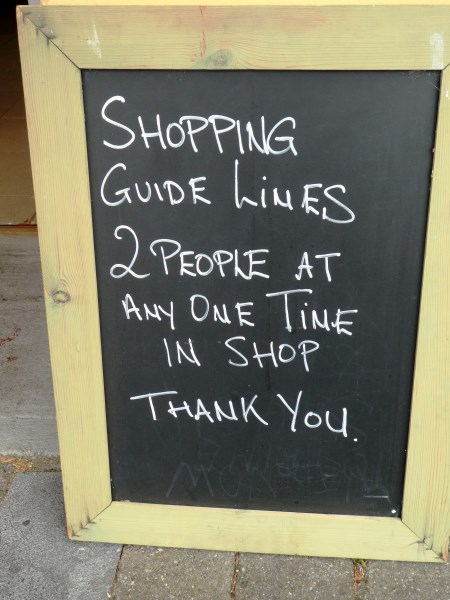 SHOPPING
GUIDE LINES
2 PEOPLE AT
ANY ONE TIME
IN SHOP
THANK YOU.